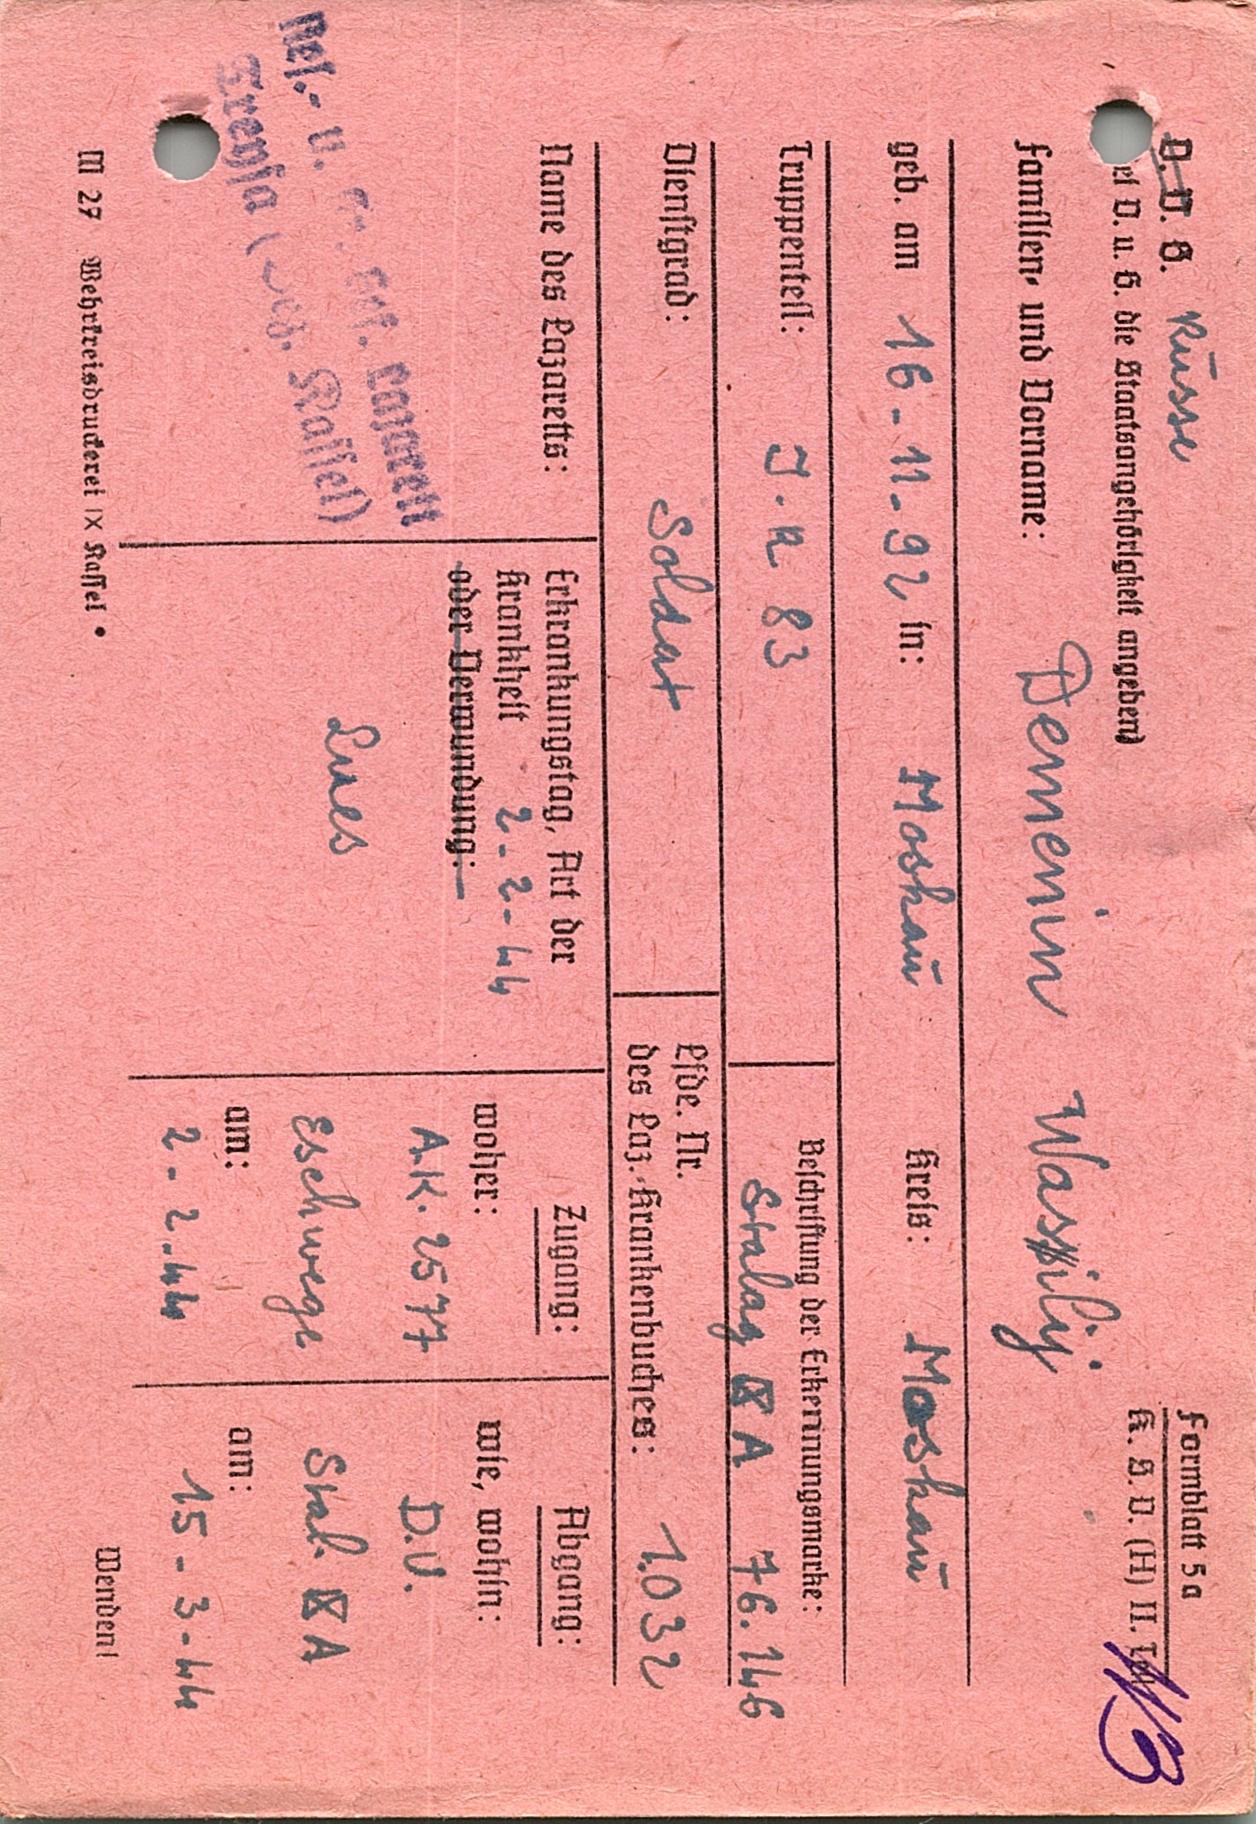 D. U. G. Russe
bei D. u. G. die Staatsangehörigkeit angeben)
Formblatt 5a
K. S. D. (H) II. Teil
Familien- und Vorname: Demenin Wassilij
geb. am 16-11-92 in: Moskau Kreis: Moskau
Truppenteil: J.R 83
Beschriftung der Erkennungsmarke:
Stalag IX A 76.146
Dienstgrad: Soldat
Lfde. Nr.
des Laz.-Krankenbuches: 1.032
Name des Lazaretts:
Res.- u. Kr. Gef. Lazarett
Treysa ( Kassel)
Erkrankungstag, Art der
Krankheit 2-2-44
oder Verwundung:
Lues
Zugang:
woher:
A.K. 2577
Eschwege
am:
2-2-44
Abgang:
wie, wohin:
D.U.
Stal. IX A
am:
15-3-44
M 27 Wehrkreisdruckerei IX Kassel •
Wenden!